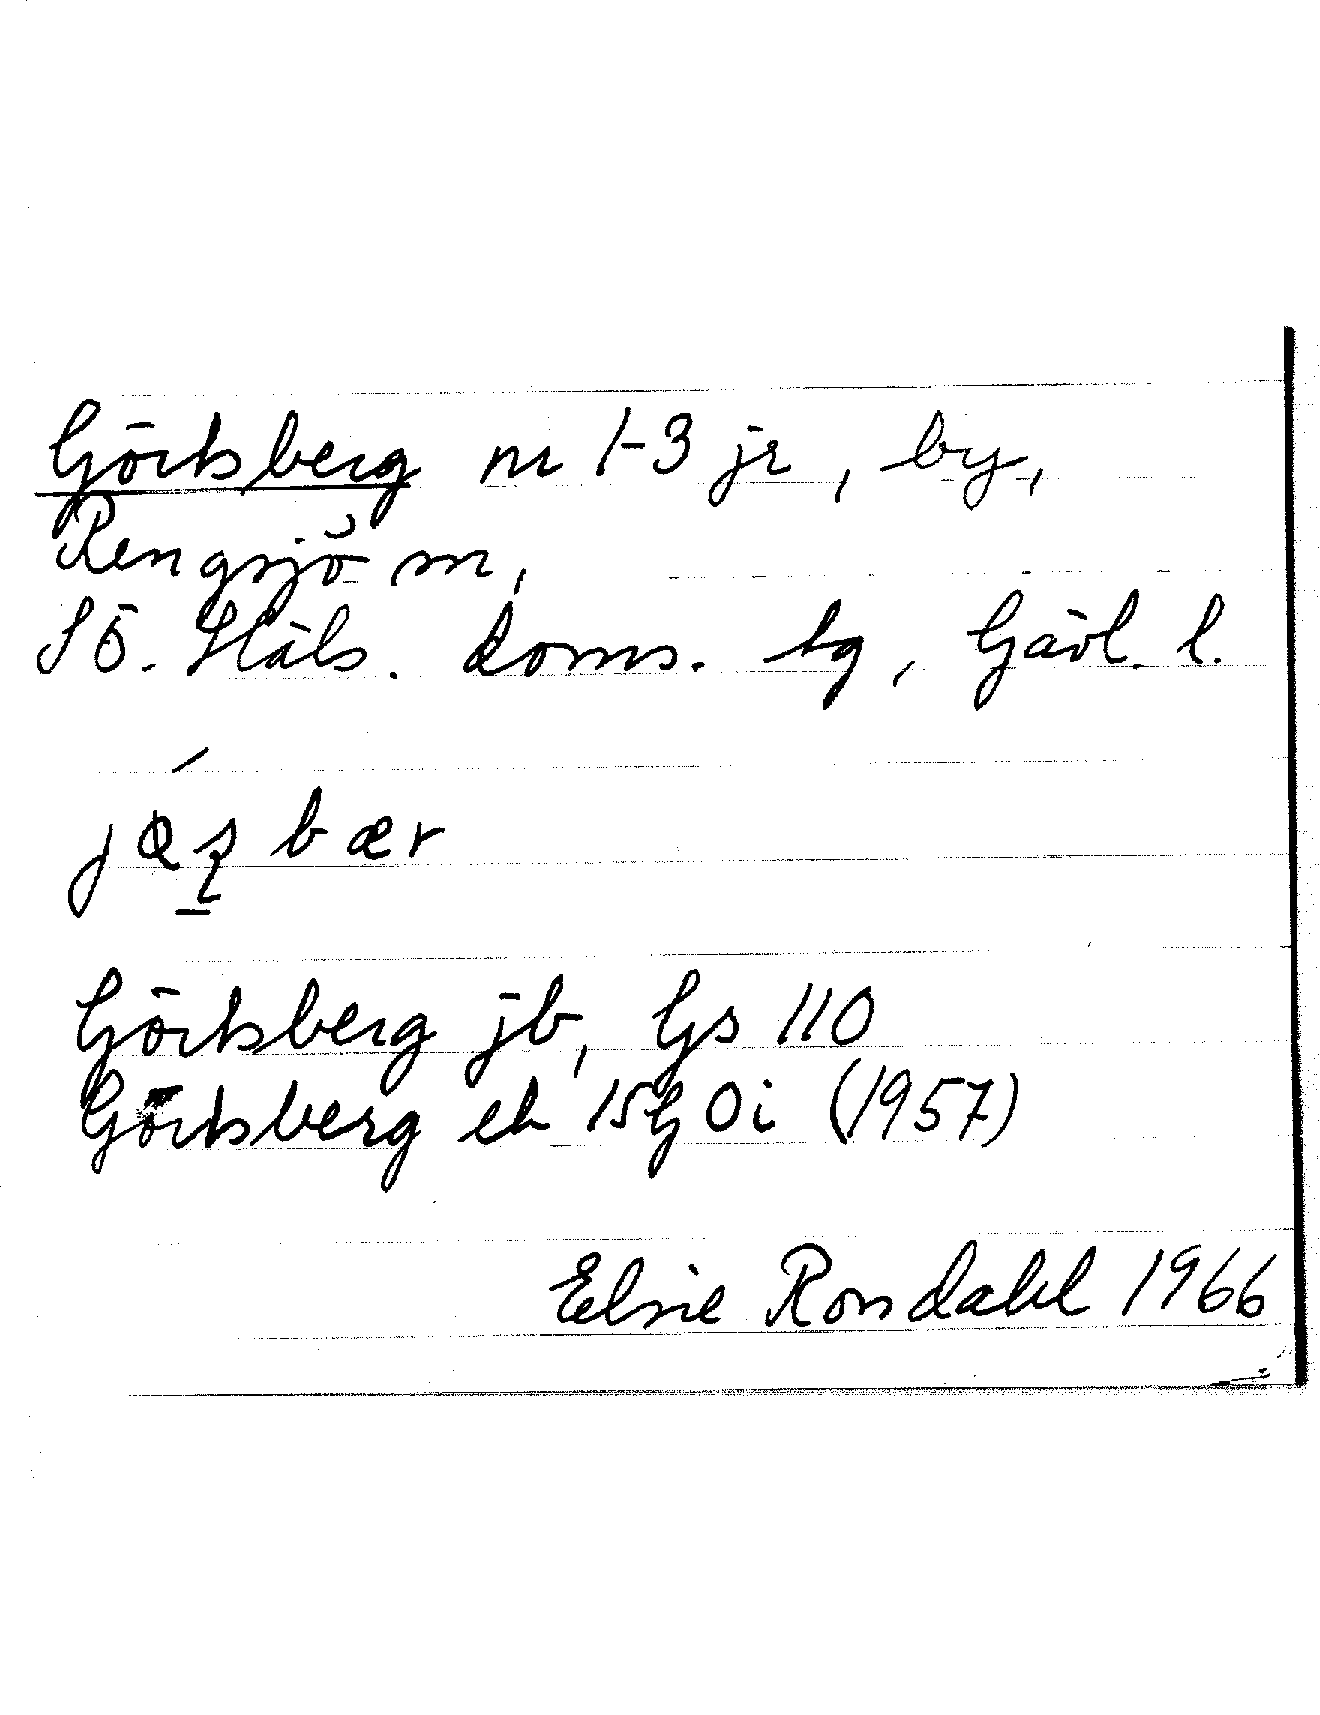 Görtsberg nr 1-3 jr, by,
Rengsjö sn,
SÖ. Häls. doms. tg, Gävl. l.
Görtsberg jb, Gs 110
Görtsberg ek 15G 0i (1957)
Elsie Rondahl 1966